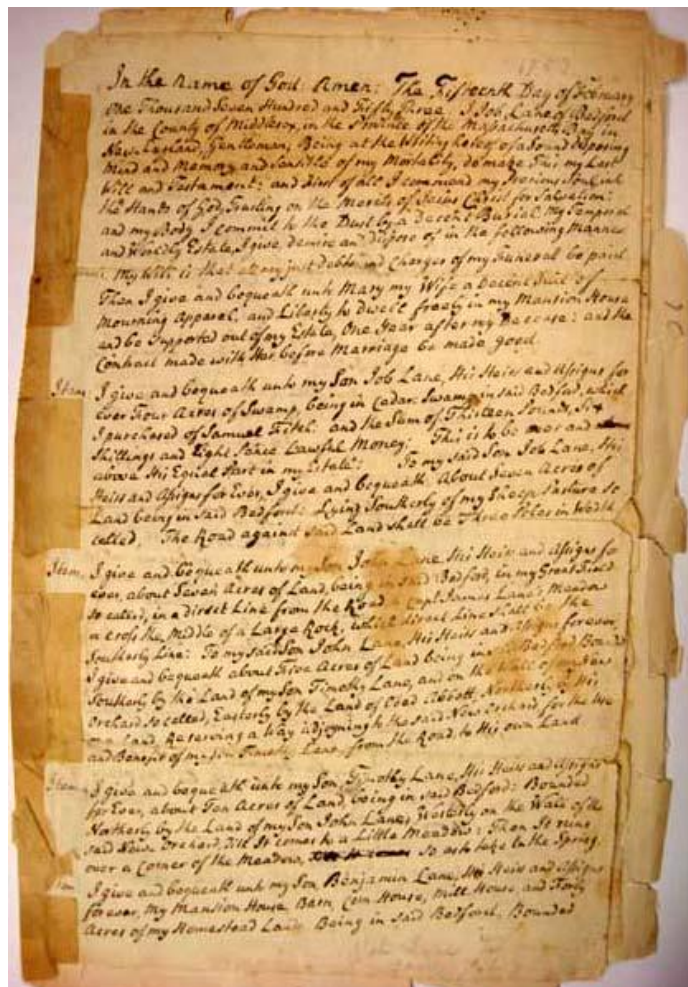 1753
In the Name of God: Amen: The Fifteenth Day of February
One Thousand Seven Hundred and Fifty Three I Job Lane of Bedford
in the County of Middlesex, in the Province of the Massachusetts Bay in
New England, Gentleman, Being at the Writing hereof of a Sound Disposing
Mind and Memory and Sensible of my Mortality, do make This my Last
Will and Testament: and First of all I commend my Precious Soul into
the Hands of God, Trusting on the Merits of Jesus Christ for Salvation:
and my Body I commit to the Dust by a Decent Burial. My Temporal
and Worldly Estate, I give, demise and dispose of in the following Manner
My Will is that all my just Debts and Charges of my Funeral be paid
Then I give and bequeath unto Mary my Wife a Decent Suit of
Mourning Apparel, and Liberty to dwell freely in my Mansion House
and be Supported out of my Estate, One Year after my Decease: and the
Contract made with Her before Marriage be made good
Item I give and bequeath unto my Son Job Lane, His Heirs and Assigns for
Ever Four Acres of Swamp, being in Cedar Swamp in said Bedford, which
I purchased of Samuel Fitch: and the Sum of Thirteen Pounds, Six
Shillings and Eight Pence Lawful Money: This is to be over and
above His Equal Part in my Estate: To my said Son Job Lane, His
Heirs and Assigns for Ever, I give and bequeath About Seven Acres of
Land being in said Bedford: Lying Southerly of my Sheep Pasture so
called, The Road against said Land shall be Three Poles in Width
Item I give and bequeath unto my Son John Lane, His Heirs and Assigns for
ever, about Seven Acres of Land, being in said Bedford, in my Great Field
so called, in a direct Line from the Road Capt James Lane's Meadow
a cross the Middle of a Large Rock, which direct Line shall be the
Southerly Line: To my said Son John Lane, His Heirs and Assigns forever,
I give and bequeath about Five Acres of Land being in Bedford Bounded
Southerly by the Land of my Son Timothy Lane, and on the Wall of my New
Orchard so called, Easterly by the Land of Obed Abbott, Northerly by His
Land, Reserving a Way adjoyning to the said New Orchard for the Use
and Benefit of my Son Timothy Lane, from the Road, to His own Land
Item I give and bequeath unto my Son, Timothy Lane, His Heirs and Assigns
for Ever, about Ten Acres of Land, being in said Bedford: Bounded
Northerly by the Land of my Son John Lane, Westerly on the Wall of the
said New Orchard, till It comes to a Little Meadow: Then It runs
over a Corner of the Meadow, so as to take in the Spring
Item I give and bequeath unto my Son, Benjamin Lane, His Heirs and Assigns
forever, My Mansion House, Barn, Corn House, Mill House and Forty
Acres of my Homestead Land Being in said Bedford, Bounded